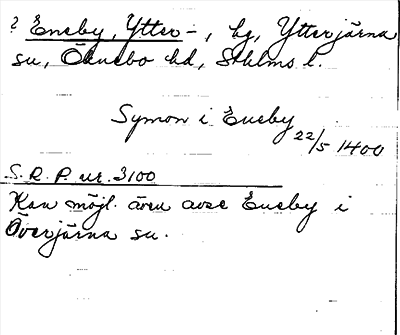 ? Eneby, Ytter-, by, Ytterjärna
su, Öknebo hd, Sthlms l.
Symon i Eneby
22/5 1400
S. R. P. nr. 3100
Kan möjl. även avse Eneby i
Överjärna su.